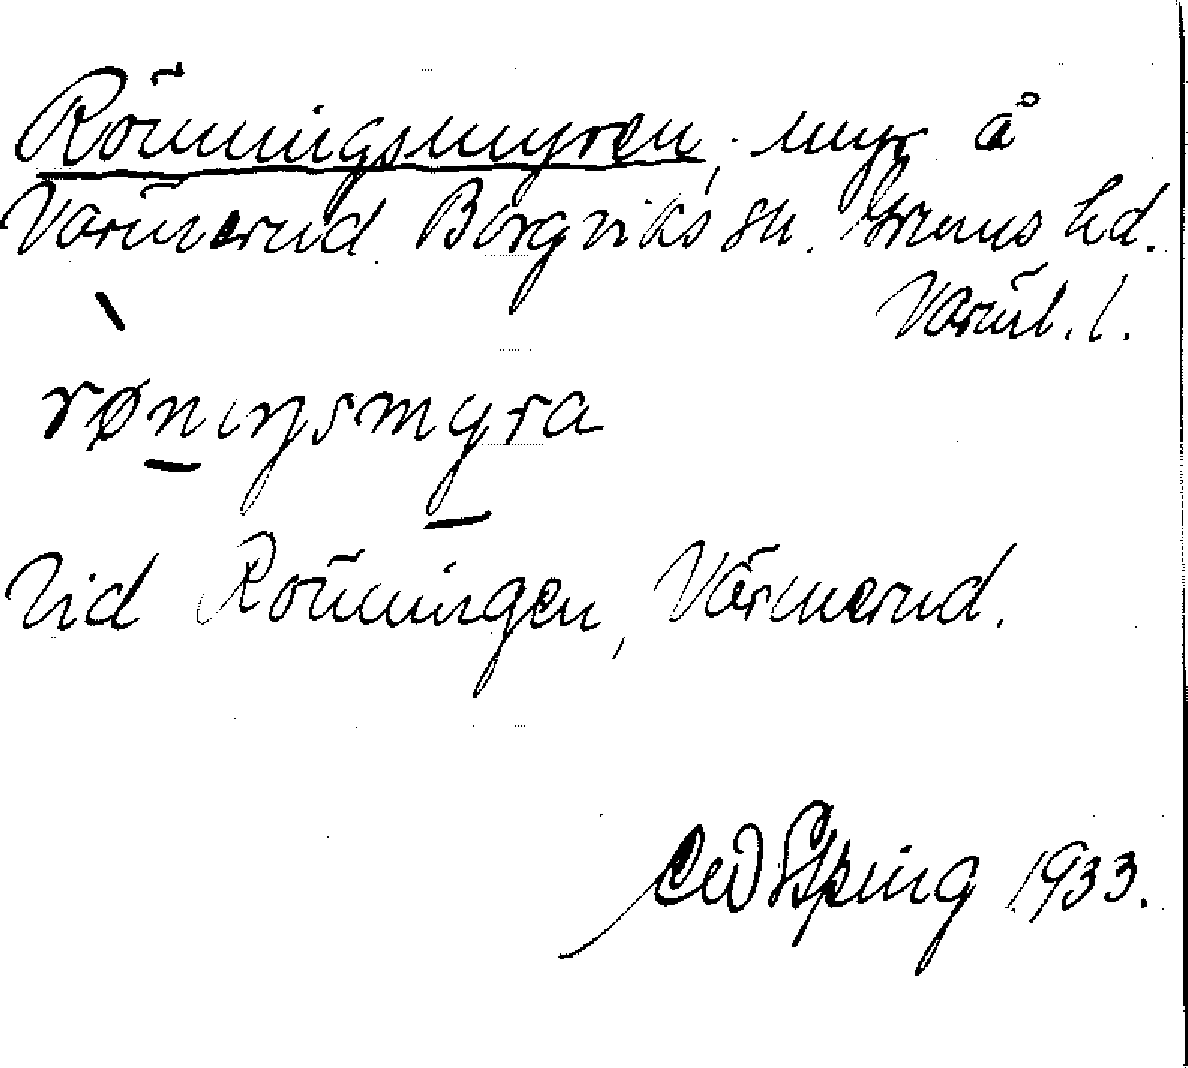 Rönningsmyren, myr å
Värmerud Borgviks sn. Grums hd.
Värml. l.
røniŋsmyra
Vid Rönningen, Värmerud.
1933.